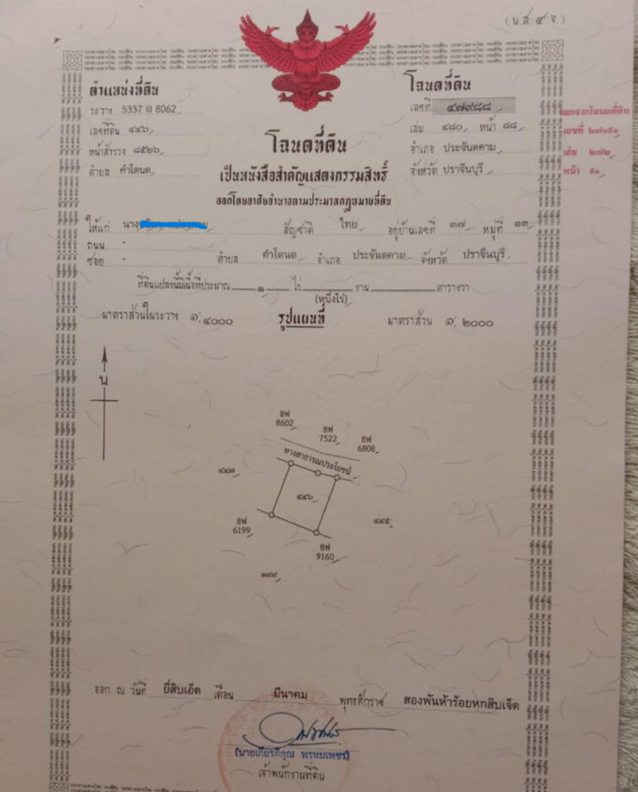 (น.ส. ๔ จ.)
ตำแหน่งที่ดิน
ระวาง 5337 III 8062
เลขที่ดิน ๔๔๖
หน้าสำรวจ ๘๕๒๖
ตำบล คำโตนด
โฉนดที่ดิน
เลขที่ ๔๗๙๘๘
เล่ม ๔๘๐ หน้า ๘๘
อำเภอ ประจันตคาม
จังหวัด ปราจีนบุรี
ออกจากโฉนดที่ดิน
เลขที่
เล่ม
หน้า ๕๑
โฉนดที่ดิน
เป็นหนังสือสำคัญแสดงกรรมสิทธิ์
ออกโดยอาศัยอำนาจตามประมวลกฎหมายที่ดิน
ให้แก่ นาง สัญชาติ ไทย อยู่บ้านเลขที่ ๓๗ หมู่ที่ ๑๓
ถนน -
ซอย - ตำบล คำโตนด อำเภอ ประจันตคาม จังหวัด ปราจีนบุรี
ที่ดินแปลงนี้มีเนื้อที่ประมาณ ๑ ไร่ งาน ตารางวา
(หนึ่งไร่)
มาตราส่วนในระวาง ๑:๔๐๐๐ รูปแผนที่ มาตราส่วน ๑:๒๐๐๐
น
8602
7522
6808
ทางสาธารณประโยชน์
๔๔๗
๔๔๖
๔๔๕
6199
9160
ออก ณ วันที่ ยี่สิบเอ็ด เดือน มีนาคม พุทธศักราช สองพันห้าร้อยหกสิบเจ็ด
(นายเกียรติคุณ พรหมเพชร)
เจ้าพนักงานที่ดิน